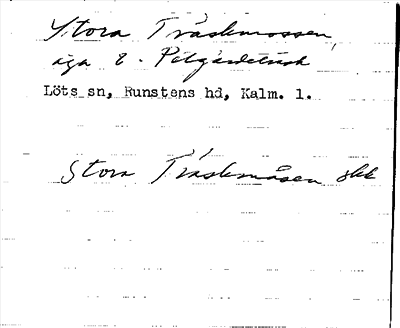 Stora Träskmossen,
äga 2. Petgärdeträsk
Löts sn, Runstens hd, Kalm. l.
Stora Träskmåsen skk